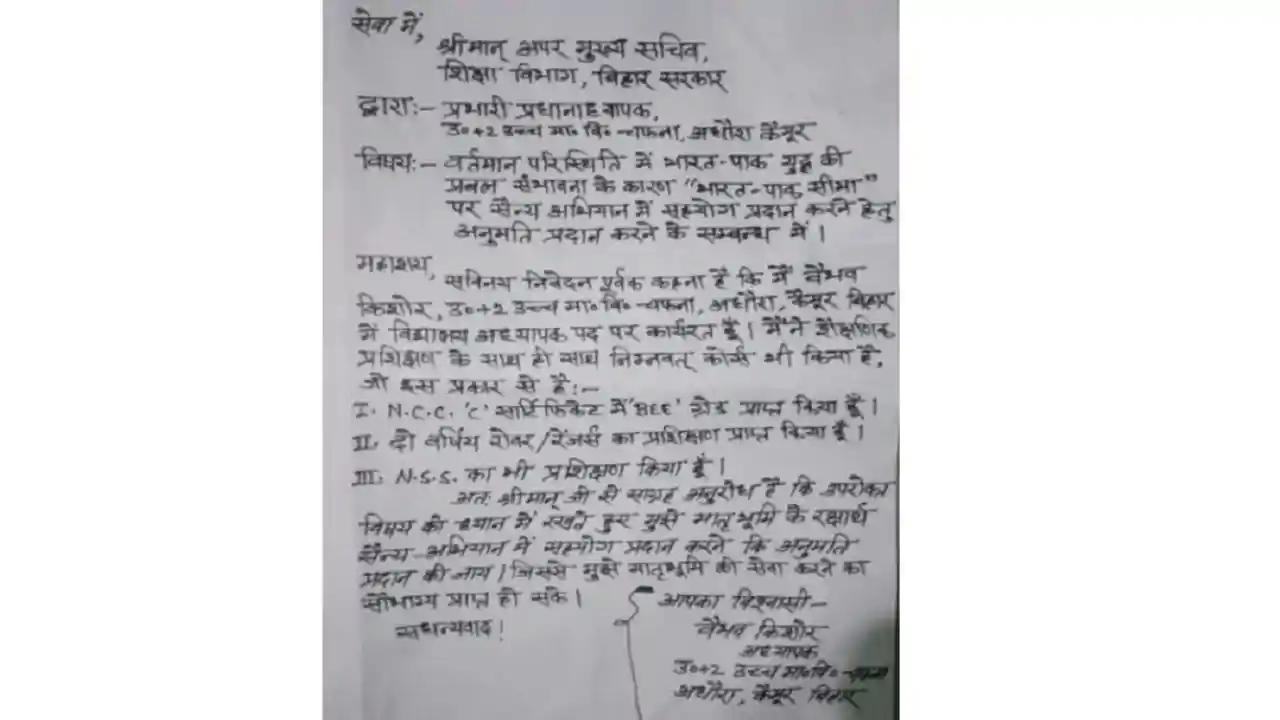 सेवा में,
श्रीमान् अपर मुख्य सचिव,
शिक्षा विभाग, बिहार सरकार
द्वारा:- प्रभारी प्रधानाध्यापक,
उ०+2 उच्च मा० वि० चफना, अधौरा कैमूर
विषय:- वर्तमान परिस्थिति में भारत-पाक युद्ध की
प्रबल संभावना के कारण "भारत-पाक सीमा"
पर सैन्य अभियान में सहयोग प्रदान करने हेतु
अनुमति प्रदान करने के सम्बन्ध में।
महाशय,
सविनय निवेदन पूर्वक कहना है कि मैं वैभव
किशोर, उ०+2 उच्च मा० वि० चफना, अधौरा, कैमूर बिहार
में विद्यालय अध्यापक पद पर कार्यरत हूँ। मैंने शैक्षणिक
प्रशिक्षण के साथ ही साथ निम्नवत् कोर्स भी किया है,
जो इस प्रकार से है:-
I. N.C.C. 'C' सार्टिफिकेट में 'BEE' ग्रेड प्राप्त किया हूँ।
II. दो वर्षिय रोवर/रेंजर्स का प्रशिक्षण प्राप्त किया हूँ।
III. N.S.S. का भी प्रशिक्षण किया हूँ।
अतः श्रीमान् जी से साग्रह अनुरोध है कि उपरोक्त
विषय को ध्यान में रखते हुए मुझे मातृभूमि के रक्षार्थ
सैन्य-अभियान में सहयोग प्रदान करने कि अनुमति
प्रदान की जाय। जिससे मुझे मातृभूमि की सेवा करने का
सौभाग्य प्राप्त हो सके।
सधन्यवाद!
आपका विश्वासी-
वैभव किशोर
अध्यापक
उ०+2 उच्च मा० वि० चफना
अधौरा, कैमूर बिहार